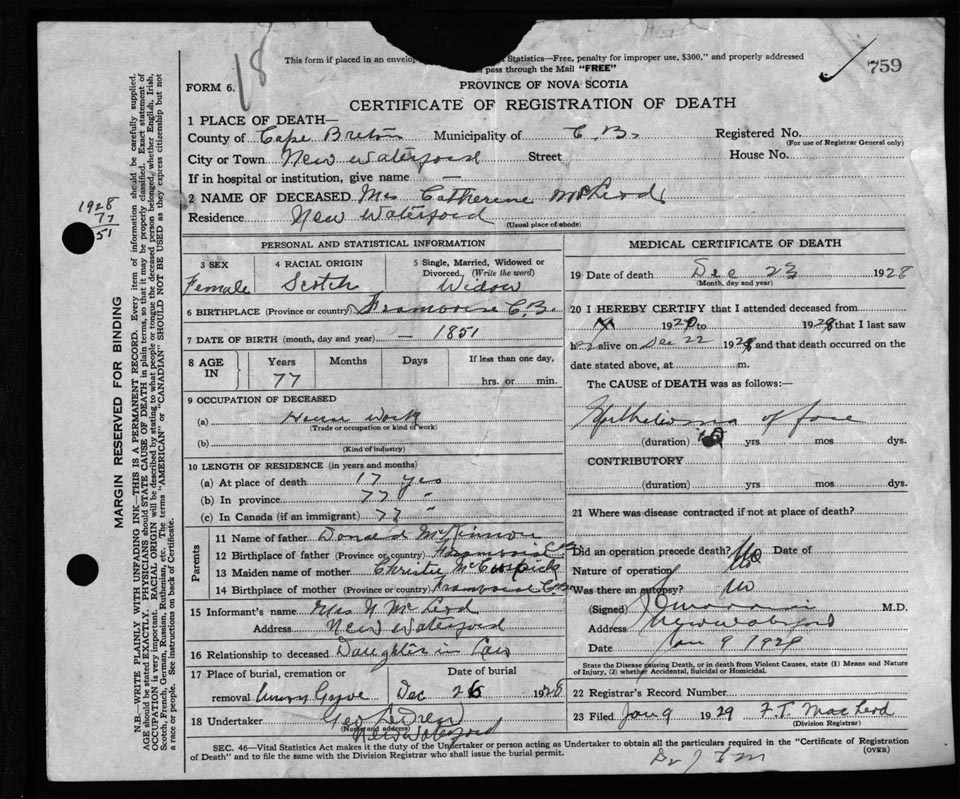 This form if placed in an envelop Statistics—Free, penalty for improper use, $300," and properly addressed
pass through the Mail "FREE"
18
759
FORM 6.
PROVINCE OF NOVA SCOTIA
CERTIFICATE OF REGISTRATION OF DEATH
1 PLACE OF DEATH—
County of Cape Breton Municipality of C.B. Registered No.
(For use of Registrar General only)
City or Town New Waterford Street House No.
If in hospital or institution, give name —
2 NAME OF DECEASED Mrs Catherine McLeod
Residence New Waterford
(Usual place of abode)
1928
77
51
PERSONAL AND STATISTICAL INFORMATION
3 SEX 4 RACIAL ORIGIN 5 Single, Married, Widowed or Divorced, (Write the word)
Female Scotch Widow
6 BIRTHPLACE (Province or country) Framboise C.B.
7 DATE OF BIRTH (month, day and year) — 1851
8 AGE IN Years Months Days If less than one day,
77 hrs. or min.
9 OCCUPATION OF DECEASED
(a) House Work
(Trade or occupation or kind of work)
(b)
(Kind of industry)
10 LENGTH OF RESIDENCE (in years and months)
(a) At place of death 17 yrs
(b) In province 77 "
(c) In Canada (if an immigrant) 77 "
Parents
11 Name of father Donald McKinnon
12 Birthplace of father (Province or country) Framboise C.B.
13 Maiden name of mother Christie
14 Birthplace of mother (Province or country) Framboise C.B.
15 Informant's name Mrs N McLeod
Address New Waterford
16 Relationship to deceased Daughter in Law
17 Place of burial, cremation or removal Date of burial
Dec 26 1928
18 Undertaker Geo
(Name and address)
New Waterford
MEDICAL CERTIFICATE OF DEATH
19 Date of death Dec 23 1928
(Month, day and year)
20 I HEREBY CERTIFY that I attended deceased from
192 to 1928 that I last saw
her alive on Dec 22 1928 and that death occurred on the
date stated above, at m.
The CAUSE of DEATH was as follows:—
Epithelioma of face
(duration) yrs mos dys.
CONTRIBUTORY
(duration) yrs mos dys.
21 Where was disease contracted if not at place of death?
Did an operation precede death? No Date of
Nature of operation
Was there an autopsy? No
(Signed) M.D.
Address New Waterford
Date Jan 9 1929
State the Disease causing Death, or in death from Violent Causes, state (1) Means and Nature
of Injury, (2) whether Accidental, Suicidal or Homicidal.
22 Registrar's Record Number
23 Filed Jan 9 1929 F.T. MacLeod
(Division Registrar)
SEC. 46—Vital Statistics Act makes it the duty of the Undertaker or person acting as Undertaker to obtain all the particulars required in the "Certificate of Registration
of Death" and to file the same with the Division Registrar who shall issue the burial permit.
(OVER)
MARGIN RESERVED FOR BINDING
N.B.—WRITE PLAINLY WITH UNFADING INK—THIS IS A PERMANENT RECORD. Every item of information should be carefully supplied.
AGE should be stated EXACTLY. PHYSICIANS should STATE CAUSE OF DEATH in plain terms, so that it may be properly classified. Exact statement of
OCCUPATION is very important. RACIAL ORIGIN will be described by stating to what people or tongue the deceased person belonged, whether English, Irish,
Scotch, French, German, Russian, Ruthenian, etc. The terms "AMERICAN" or "CANADIAN" SHOULD NOT BE USED as they express citizenship but not
a race or people. See instructions on back of Certificate.